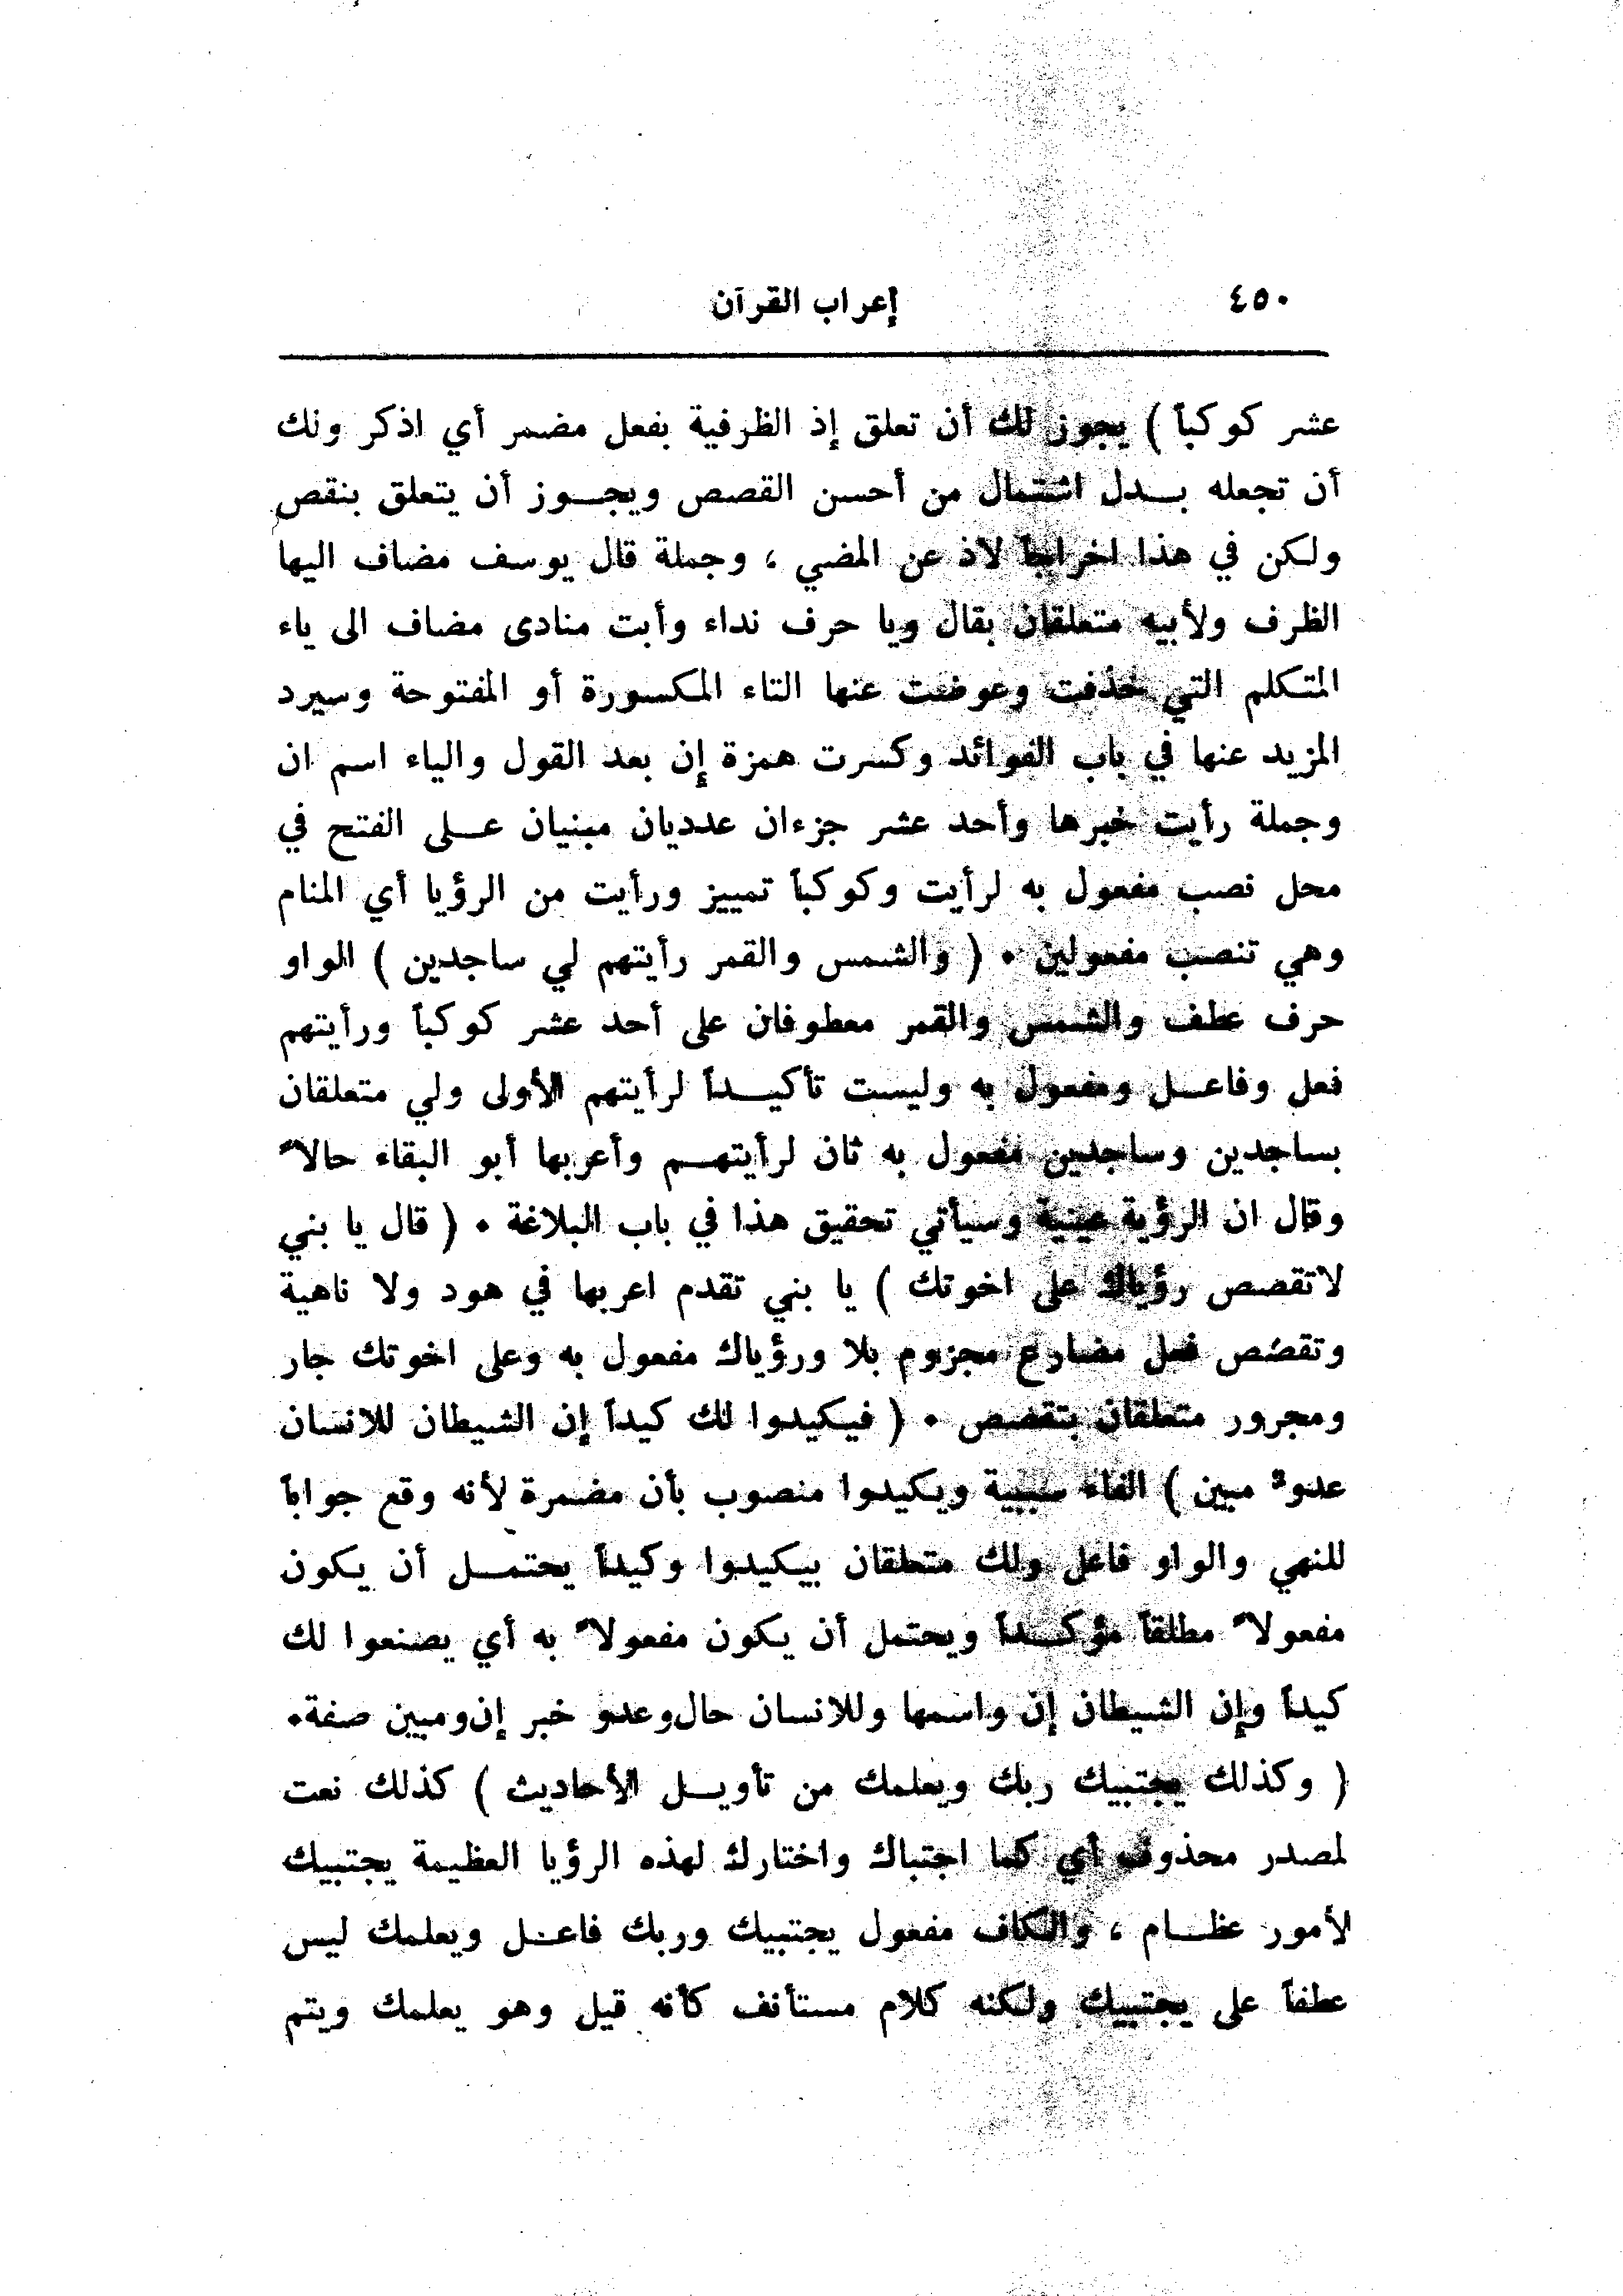 ٤٥٠ إعراب القرآن
عشر كوكباً ) يجوز لك أن تعلق إذ الظرفية بفعل مضمر أي اذكر ولك
أن تجعله بدل اشتمال من أحسن القصص ويجوز أن يتعلق بنقص
ولكن في هذا اخراجاً لاذ عن المضي ، وجملة قال يوسف مضاف اليها
الظرف ولأبيه متعلقان بقال ويا حرف نداء وأبت منادى مضاف الى ياء
المتكلم التي حذفت وعوضت عنها التاء المكسورة أو المفتوحة وسيرد
المزيد عنها في باب الفوائد وكسرت همزة إن بعد القول والياء اسم ان
وجملة رأيت خبرها وأحد عشر جزءان عدديان مبنيان على الفتح في
محل نصب مفعول به لرأيت وكوكباً تمييز ورأيت من الرؤيا أي المنام
وهي تنصب مفعولين ٠ ( والشمس والقمر رأيتهم لي ساجدين ) الواو
حرف عطف والشمس والقمر معطوفان على أحد عشر كوكباً ورأيتهم
فعل وفاعل ومفعول به وليست تأكيداً لرأيتهم الأولى ولي متعلقان
بساجدين وساجدين مفعول به ثان لرأيتهم وأعربها أبو البقاء حالاً
وقال ان الرؤية عينية وسيأتي تحقيق هذا في باب البلاغة ٠ ( قال يا بني
لاتقصص رؤياك على اخوتك ) يا بني تقدم اعربها في هود ولا ناهية
وتقصص فعل مضارع مجزوم بلا ورؤياك مفعول به وعلى اخوتك جار
ومجرور متعلقان بتقصص ٠ ( فيكيدوا لك كيداً إن الشيطان للانسان
عدوٌ مبين ) الفاء سببية ويكيدوا منصوب بأن مضمرة لأنه وقع جواباً
للنهي والواو فاعل ولك متعلقان بيكيدوا وكيداً يحتمل أن يكون
مفعولاً مطلقاً مؤكداً ويحتمل أن يكون مفعولاً به أي يصنعوا لك
كيداً وإن الشيطان إن واسمها وللانسان حال وعدو خبر إن ومبين صفة٠
( وكذلك يجتبيك ربك ويعلمك من تأويل الأحاديث ) كذلك نعت
لمصدر محذوف أي كما اجتباك واختارك لهذه الرؤيا العظيمة يجتبيك
لأمور عظام ، والكاف مفعول يجتبيك وربك فاعل ويعلمك ليس
عطفاً على يجتبيك ولكنه كلام مستأنف كأنه قيل وهو يعلمك ويتم